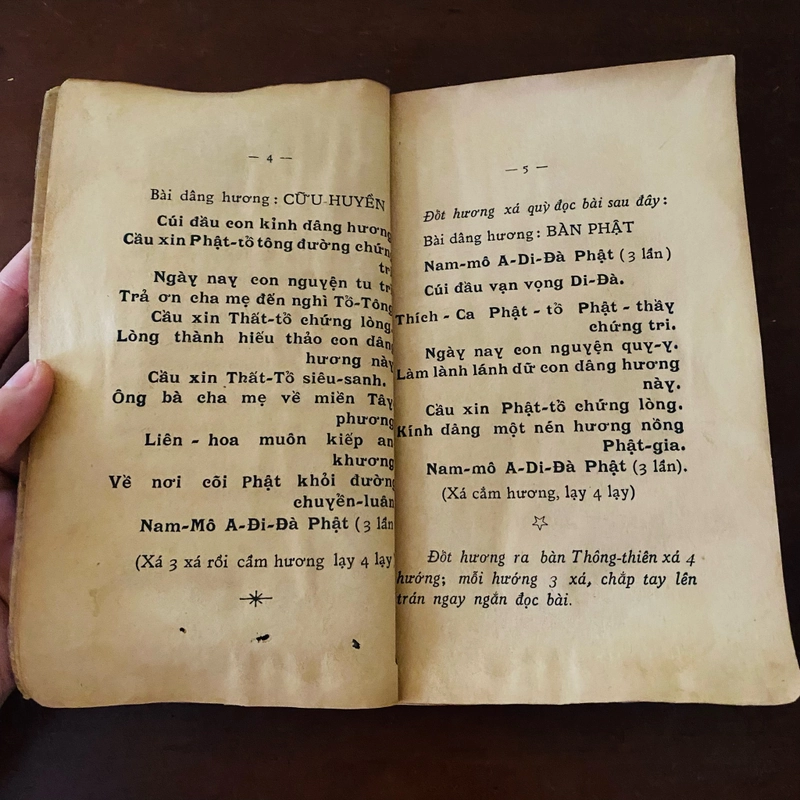 — 4 —
Bài dâng hương : CỮU-HUYỀN
Cúi đầu con kỉnh dâng hương
Cầu xin Phật-tồ tông đường chứn
tri
Ngày nay con nguyện tu tri
Trả ơn cha mẹ đến nghì Tồ-Tông
Cầu xin Thất-tồ chứng lòng
Lòng thành hiếu thảo con dân
hương này
Cầu xin Thất-Tồ siêu-sanh.
Ông bà cha mẹ về miền Tây
phương
Liên - hoa muôn kiếp an
khương
Về nơi cõi Phật khỏi đườn
chuyền-luân
Nam-Mô A-Đi-Đà Phật (3 lần
(Xá 3 xá rồi cầm hương lạy 4 lạy
— 5 —
Đốt hương xá quỳ đọc bài sau đây :
Bài dâng hương : BÀN PHẬT
Nam-mô A-Di-Đà Phật (3 lần)
Cúi đầu vạn vọng Di-Đà.
Thích - Ca Phật - tồ Phật - thầy
chứng tri.
Ngày nay con nguyện quy-y.
Làm lành lánh dữ con dâng hương
này.
Cầu xin Phật-tồ chứng lòng.
Kính dảng một nén hương nồng
Phật-gia.
Nam-mô A-Di-Đà Phật (3 lần).
(Xá cầm hương, lạy 4 lạy)
Đốt hương ra bàn Thông-thiên xá 4
hướng; mỗi hướng 3 xá, chắp tay lên
trán ngay ngắn đọc bài.